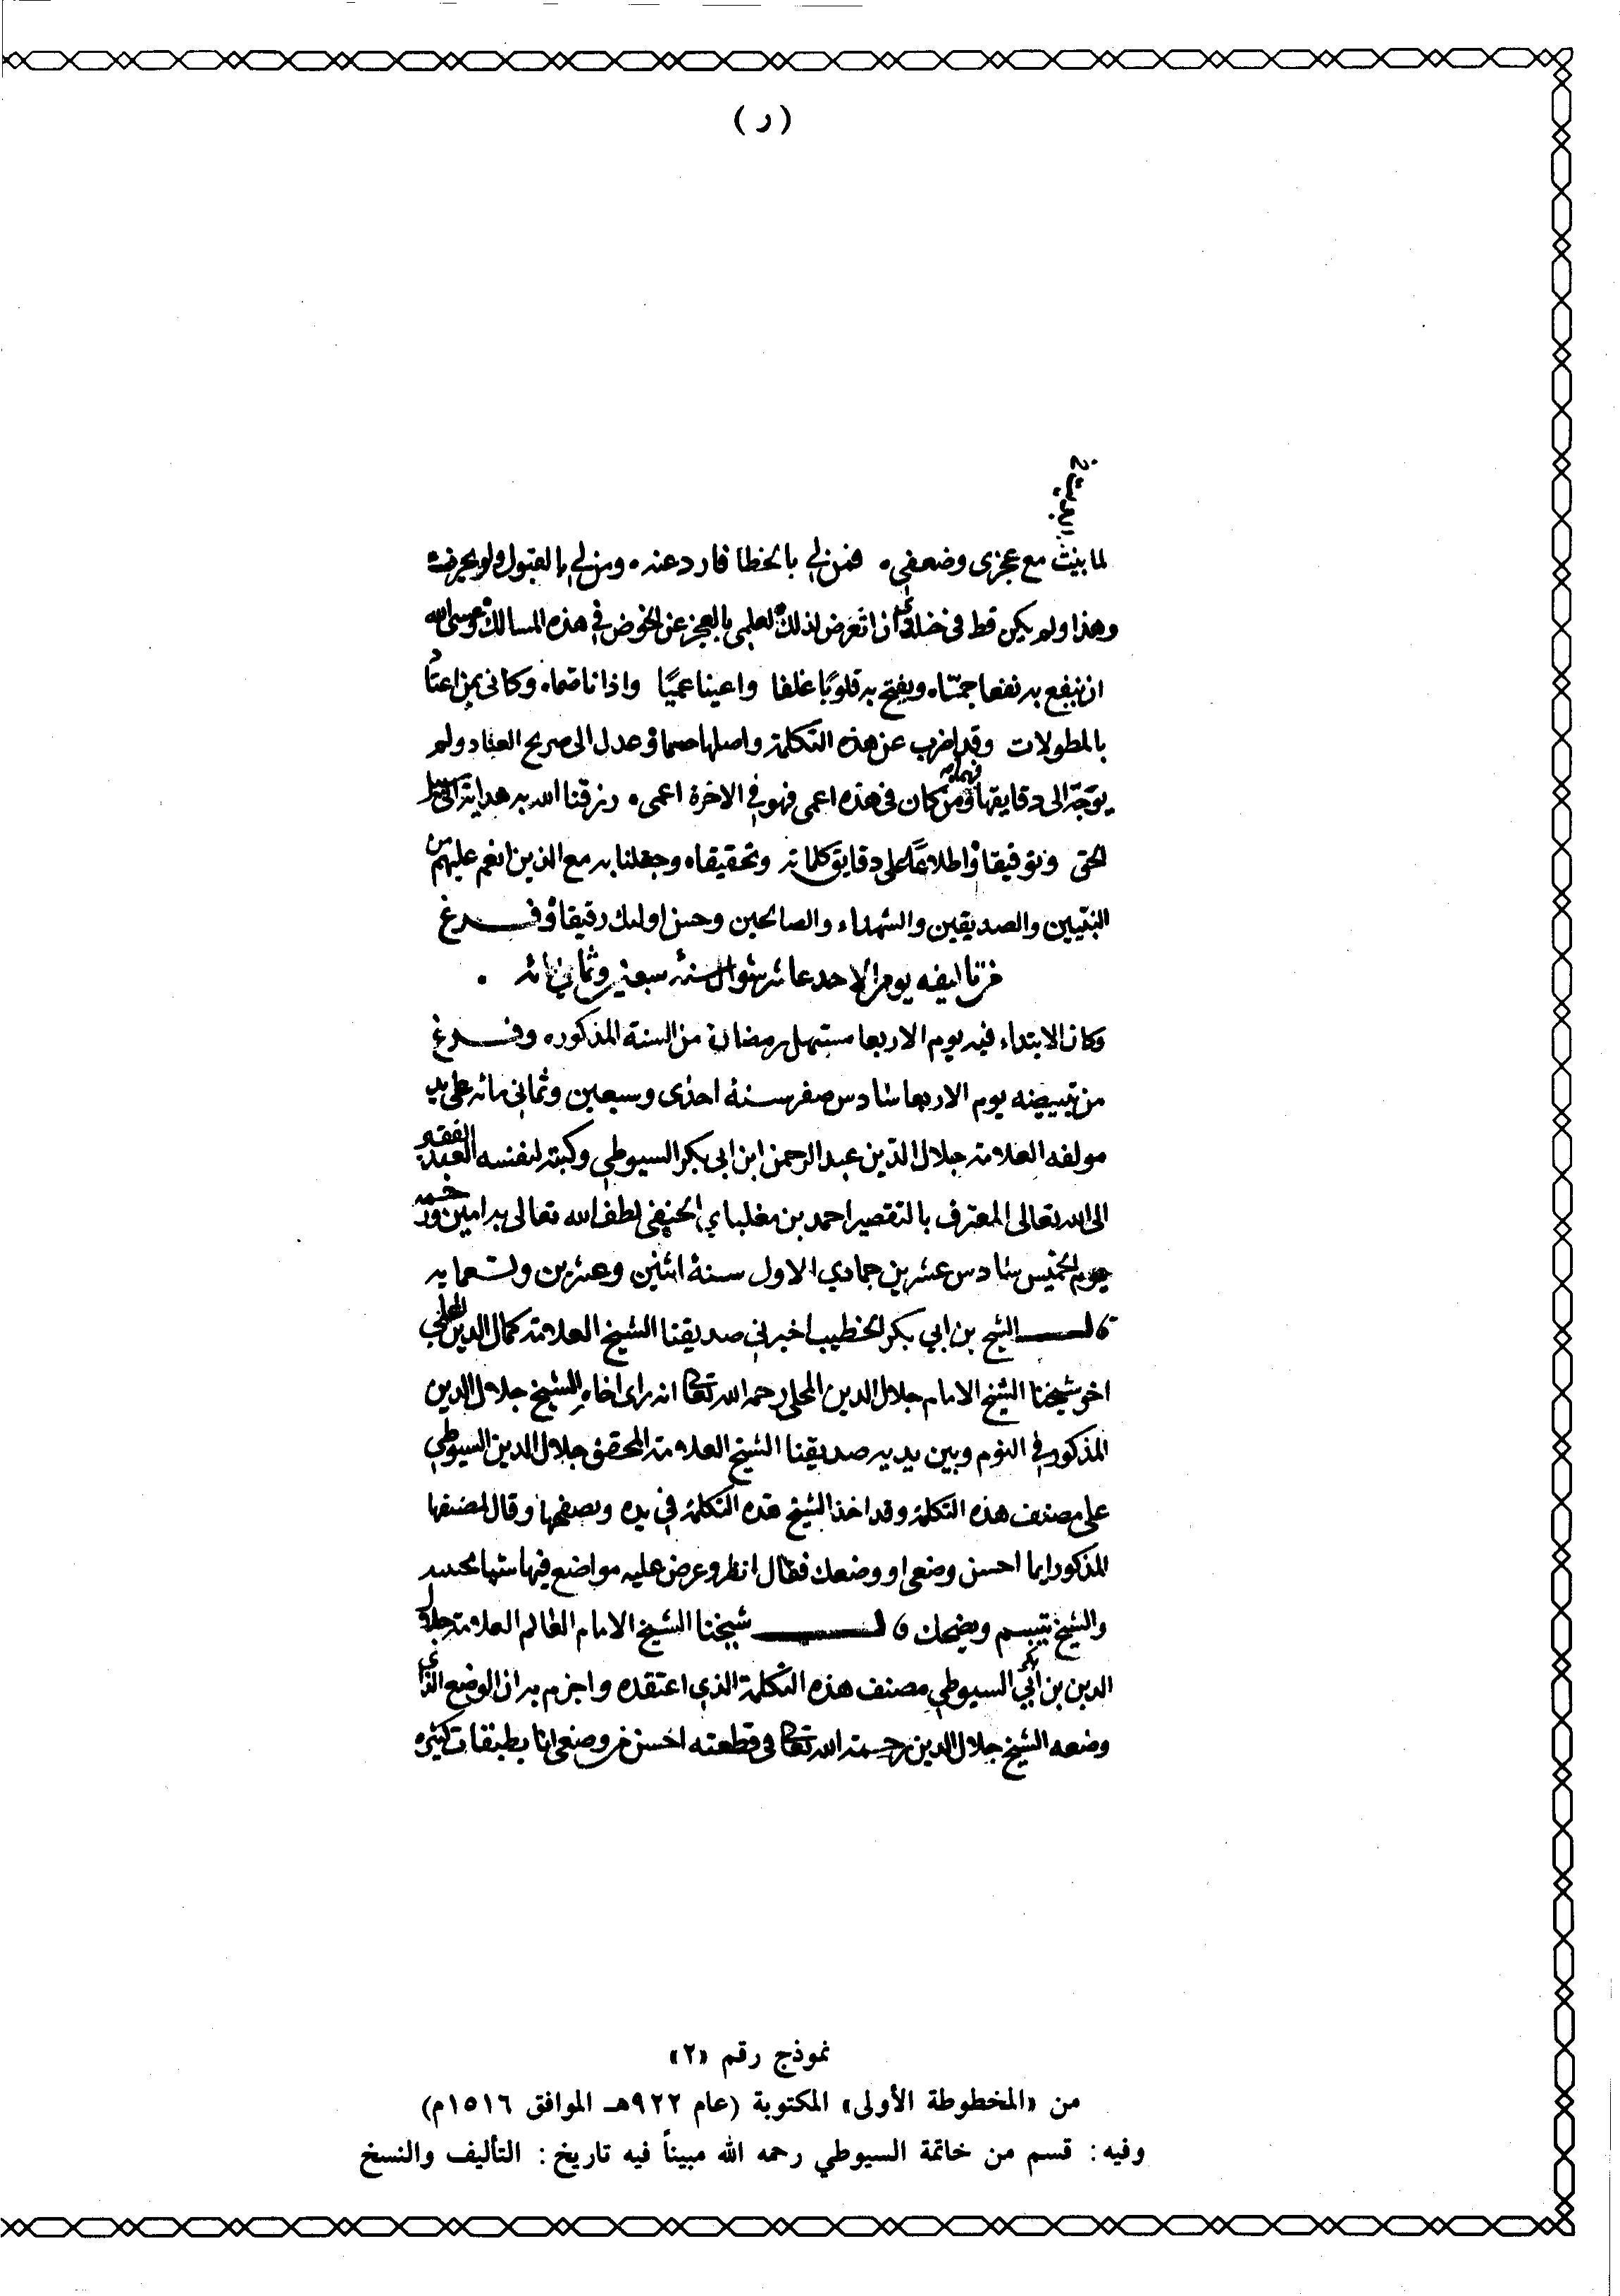 ( ر )
لما بينت مع عجزى وضعفى فمن لى بالخطا فارد عنه ومن لى بالقبول ولو بحرف
وهذا ولم يكن قط فى خلدى ان اتعرض لذلك لعلمى بالعجز عن الخوض فى هذه المسالك وعسى الله
ان ينفع به نفعا جما ويفتح به قلوبا غلفا واعينا عميا واذانا صما وكانى بمن اعتاد
بالمطولات وقد اضرب عن هذه التكلمة واصلها حسما وعدل الى صريح العناد ولم
يوجه الى دقايقها فهما ومن كان فى هذه اعمى فهو فى الاخرة اعمى رزقنا الله به هداية الى سبيل
الحق وتوفيقا واطلاعا على دقايق كلماته وتحقيقا وجعلنا به مع الذين انعم عليهم من
النبيين والصديقين والشهداء والصالحين وحسن اولئك رفيقا وفرغ
من تاليفه يوم الاحد عاشر شوال سنة سبعين وثمانى مائه
وكان الابتداء فيه يوم الاربعا مستهل رمضان من السنة المذكوره وفرغ
من تبييضه يوم الاربعا سادس صفر سنة احدى وسبعين وثمانى مائه على يد
مولفه العلامة جلال الدين عبد الرحمن ابن ابى بكر السيوطى وكتبه لنفسه العبد الفقير
الى الله تعالى المعترف بالتقصير احمد بن مغلباي الحنفى لطف الله تعالى به امين
يوم الخميس سادس عشرين جمادي الاول سنة اثنين وعشرين وتسعمايه
قال الشيخ بن ابي بكر الخطيب اخبرنى صديقنا الشيخ العلامة كمال الدين المحلي
اخو شيخنا الشيخ الامام جلال الدين المحلى رحمه الله تعالى انه راى اخاه الشيخ جلال الدين
المذكور فى النوم وبين يديه صديقنا الشيخ العلامة المحقق جلال الدين السيوطي
على مصنف هذه التكلمة وقد اخذ الشيخ هذه التكلمة فى يده وتصفحها وقال لمصنفها
المذكور ايما احسن وضعى او وضعك فقال انظر وعرض عليه مواضع فيها
والشيخ يتبسم ويضحك قال شيخنا الشيخ الامام العالم العلامة جلال
الدين بن ابي بكر السيوطي مصنف هذه التكلمة الذي اعتقده واجزم به ان الوضع الذى
وضعه الشيخ جلال الدين رحمة الله تعالى فى قطعته احسن من وضعى انا بطبقات كثيره
نموذج رقم «٢»
من «المخطوطة الأولى» المكتوبة (عام ٩٢٢هـ الموافق ١٥١٦م)
وفيه: قسم من خاتمة السيوطي رحمه الله مبيناً فيه تاريخ: التأليف والنسخ